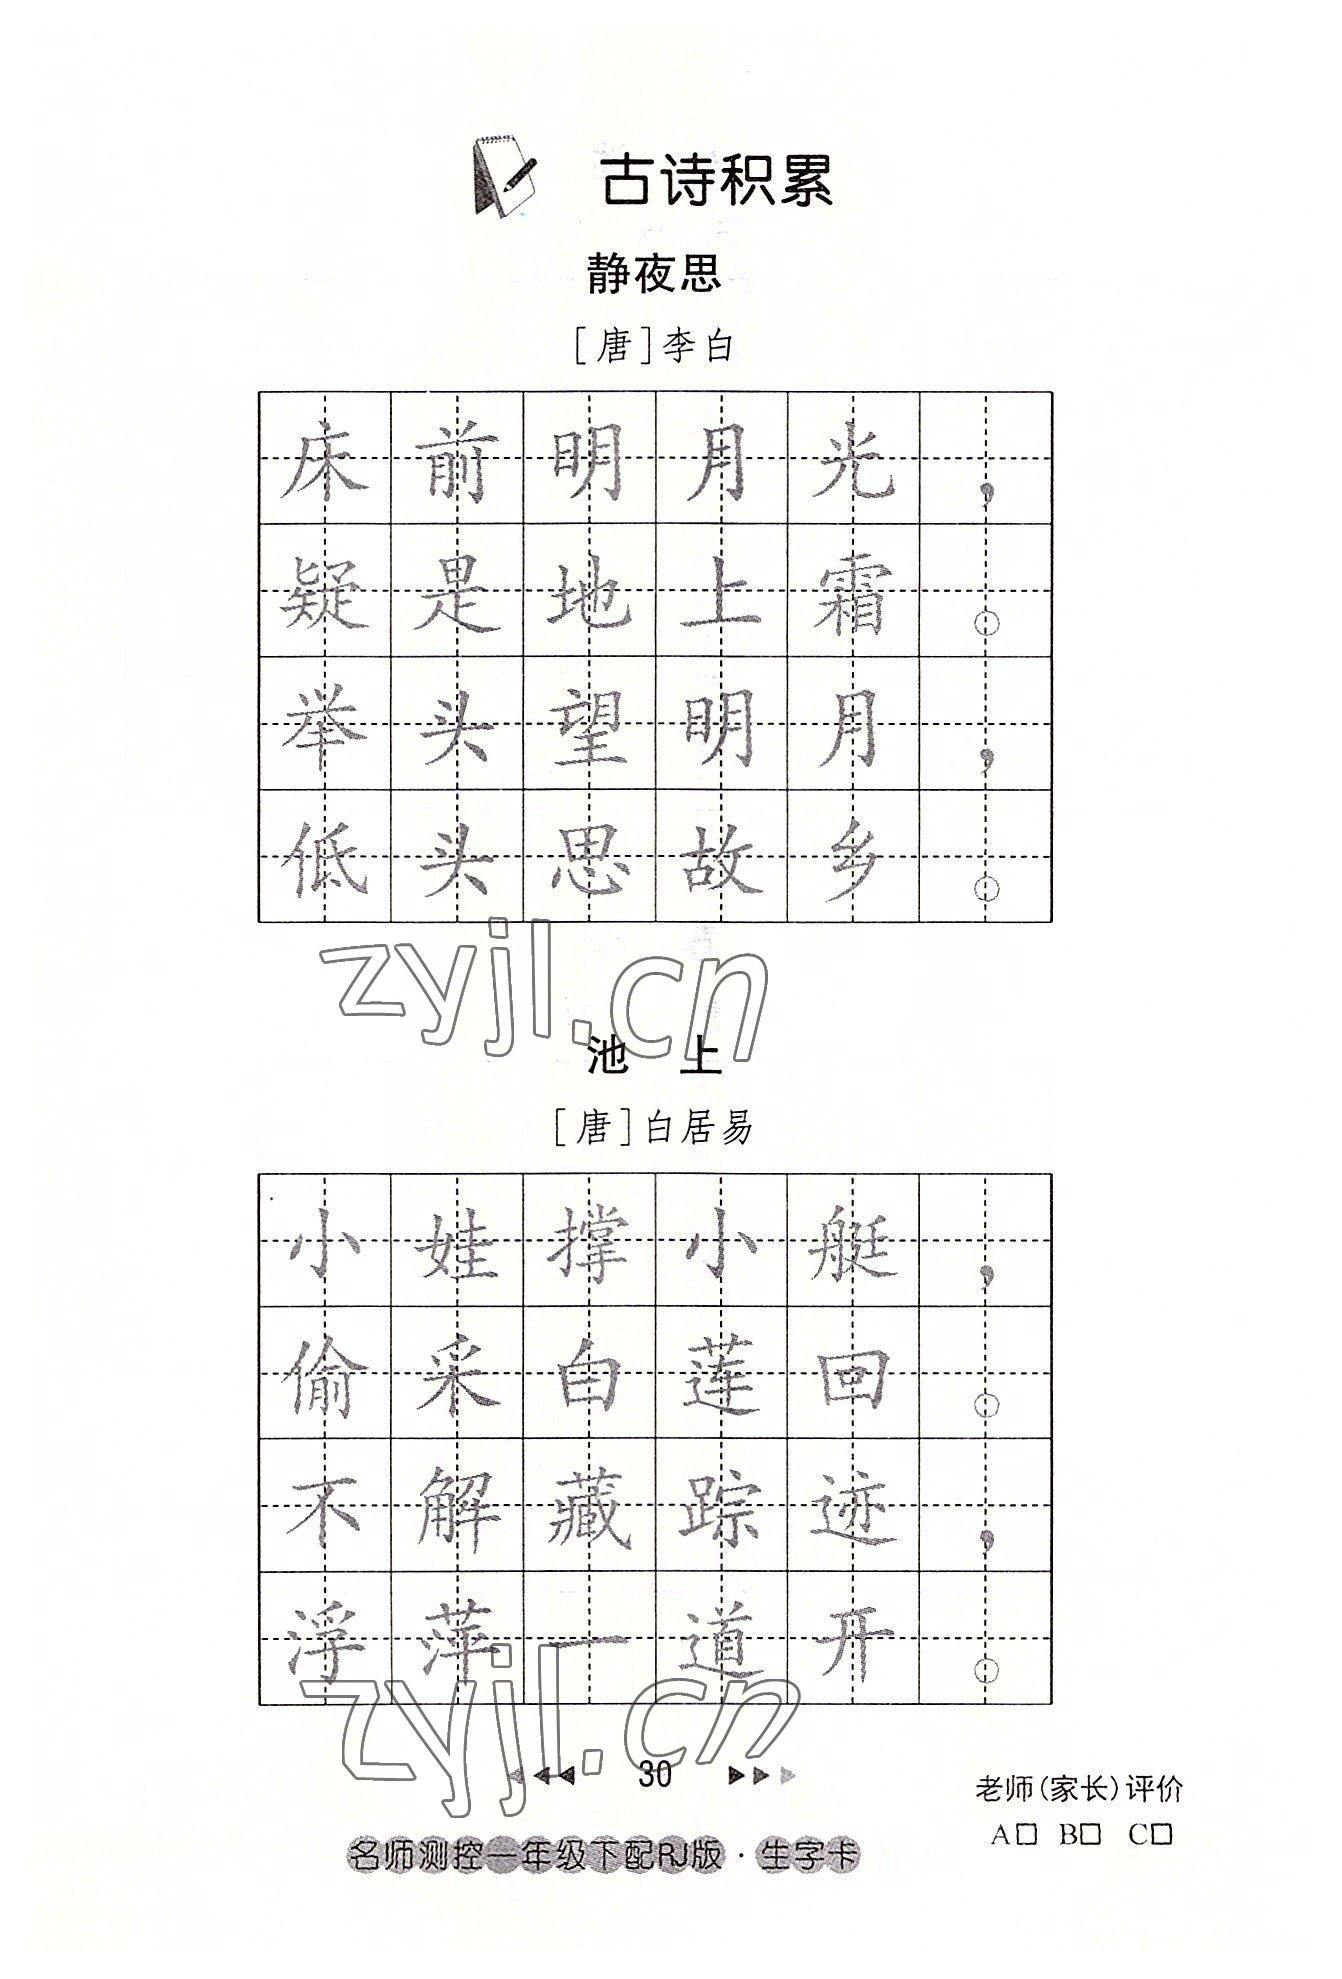 古诗积累
静夜思
[唐]李白
床前明月光，
疑是地上霜。
举头望明月，
低头思故乡。
zyjl.cn
池 上
[唐]白居易
小娃撑小艇，
偷采白莲回。
不解藏踪迹，
浮萍一道开。
zyjl.cn
30
老师(家长)评价
A□ B□ C□
名师测控一年级下配RJ版·生字卡